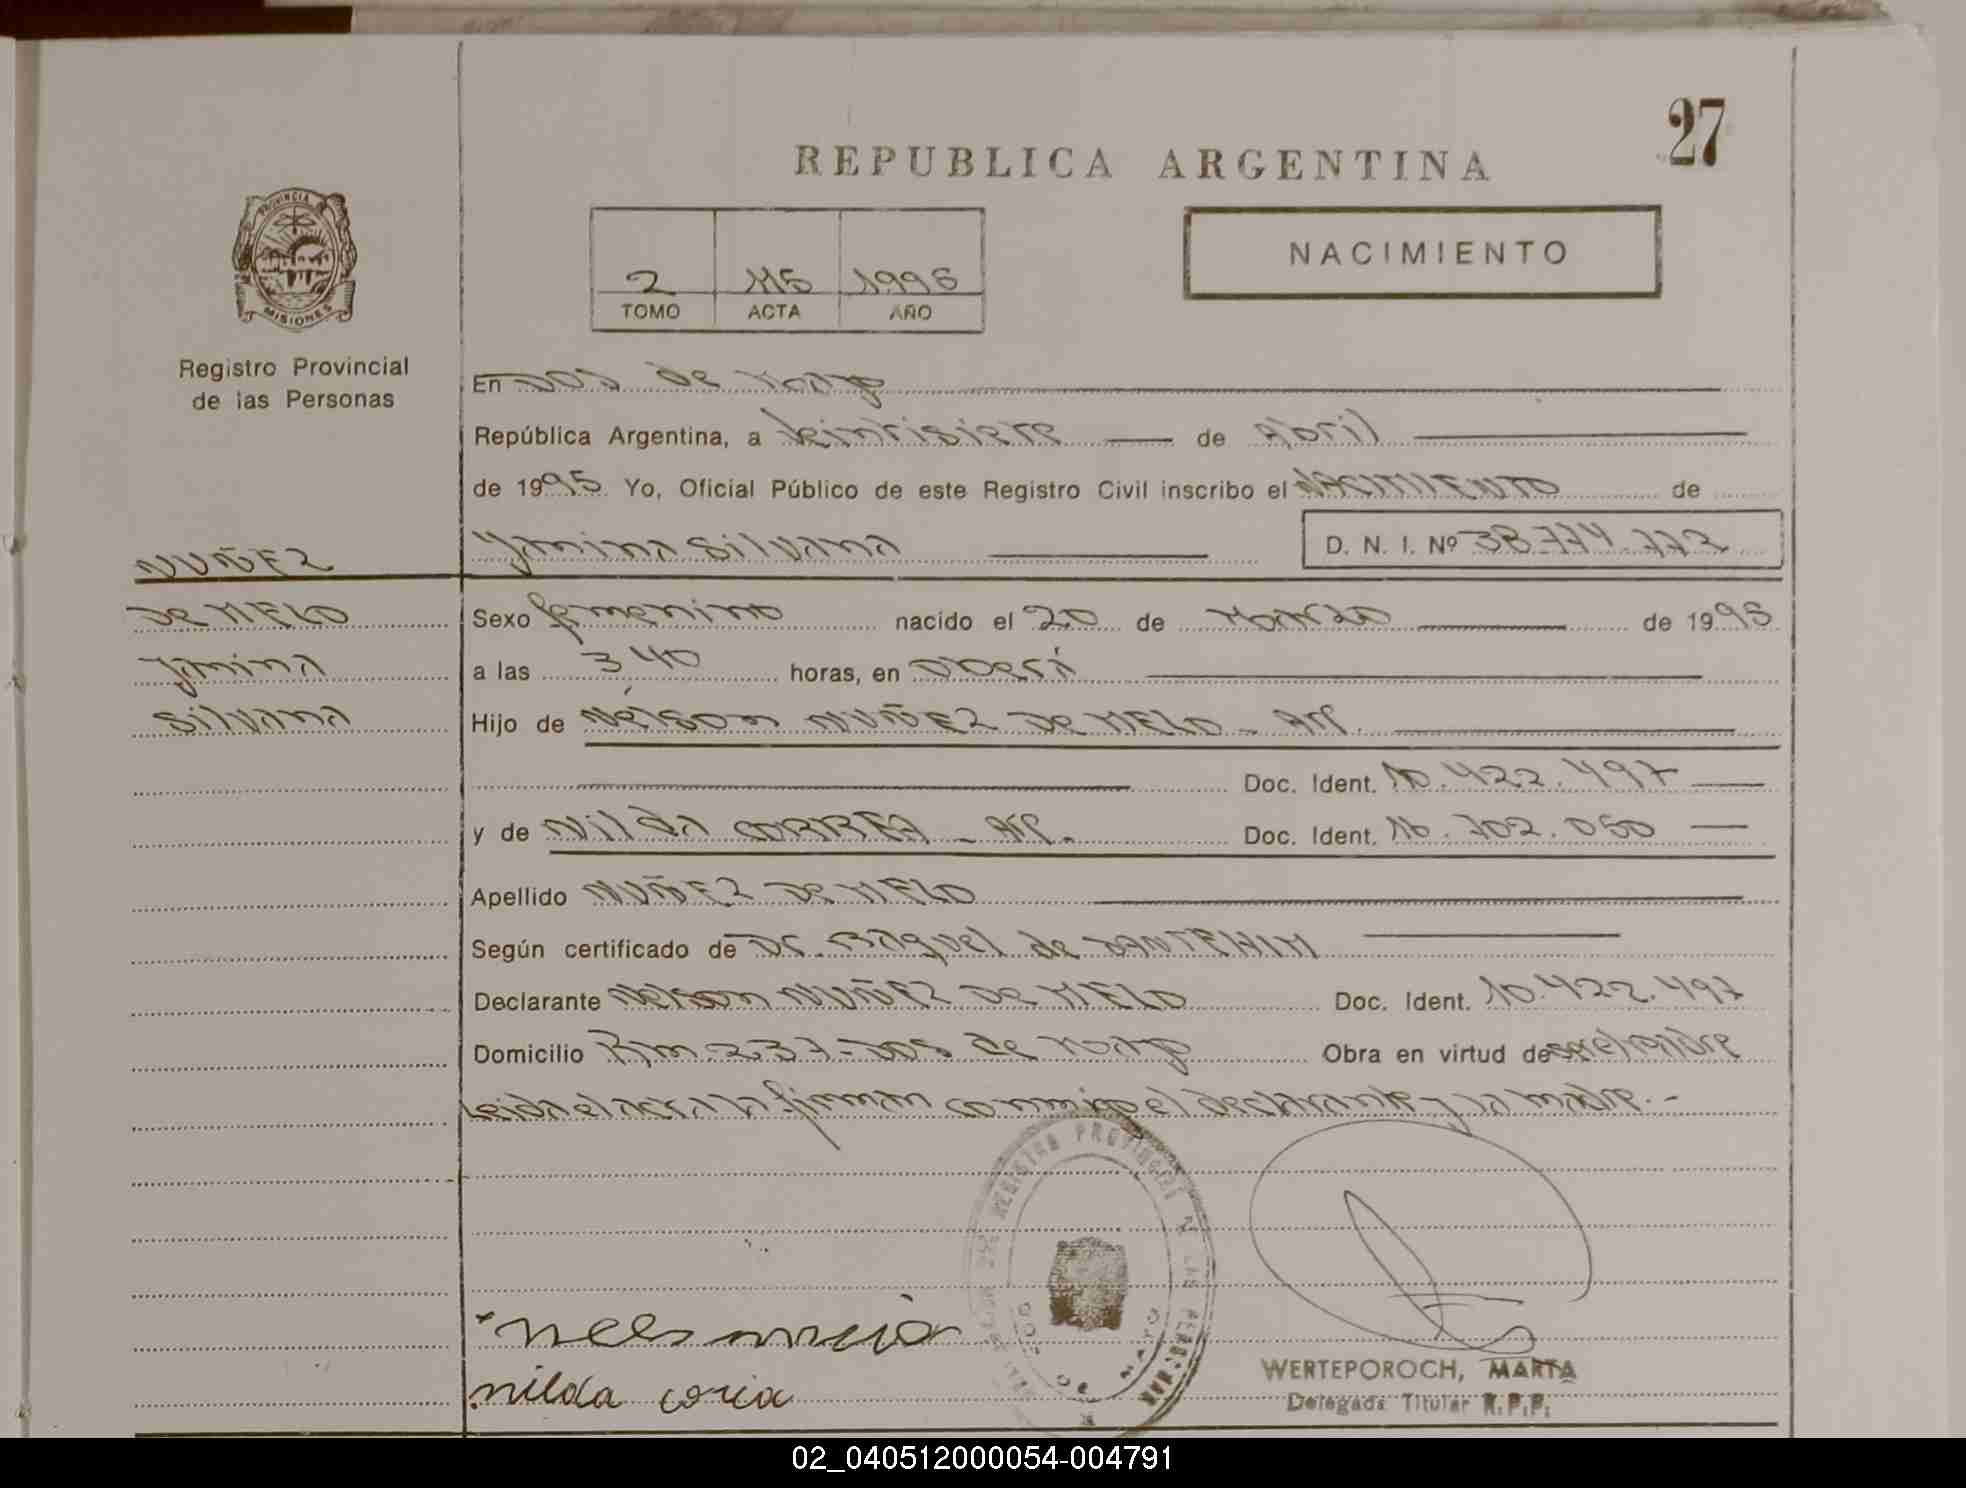 27
REPUBLICA ARGENTINA
PROVINCIA DE
MISIONES
NACIMIENTO
2 115 1995
TOMO ACTA AÑO
Registro Provincial
de las Personas
En DOS de Mayo
República Argentina, a Veintisiete de Abril
de 1995 Yo, Oficial Público de este Registro Civil inscribo el NACIMIENTO de
NUÑEZ Yanina Silvana D. N. I. Nº 38.774.772
DE MELO Sexo femenino nacido el 20 de Marzo de 1995
Yanina a las 3 40 horas, en Oberá
Silvana Hijo de Nélson NUÑEZ DE MELO - Arg.
Doc. Ident. 10.422.497
y de Nilda CORREA - Arg. Doc. Ident. 16.702.050
Apellido NUÑEZ DE MELO
Según certificado de Dr. Raquel de
Declarante Nelson NUÑEZ DE MELO Doc. Ident. 10.422.497
Domicilio Km 237 - Dos de Mayo Obra en virtud de ser el padre
Leida el acta la firman conmigo el declarante y la madre.-
REGISTRO PROVINCIAL DE LAS PERSONAS
DOS DE MAYO
nilda
WERTEPOROCH, MARTA
Delegada Titular R.P.P.
02_040512000054-004791